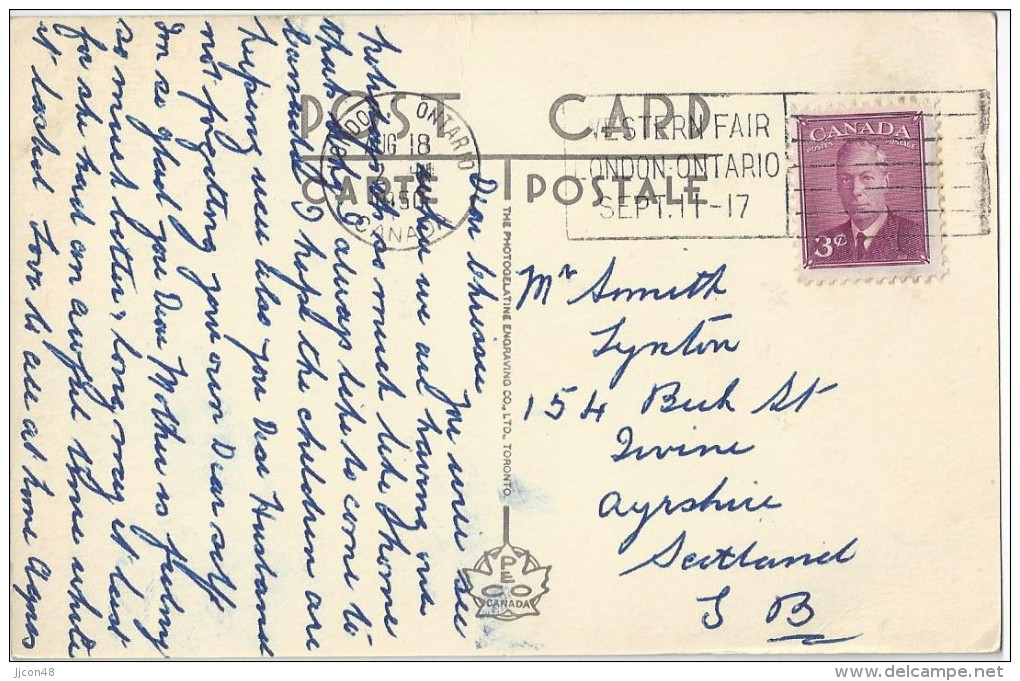 POST CARD
CARTE POSTALE
LONDON ONTARIO
AUG 18
1950
CANADA
WESTERN FAIR
LONDON-ONTARIO
SEPT. 11-17
CANADA
POSTES POSTAGE
3¢
Dear Chrissie You will see
by this we are having our
holidays. It is so much like home
that I always like to come to
I hope the children are
keeping well also you Dear Husband
not forgetting your own Dear self
Im so glad your Dear Mother is feeling
so much better, long may it last
for she had an awful time while
it lasted. Love to all at home Agnes
THE PHOTOGELATINE ENGRAVING CO., LTD., TORONTO.
PECO
CANADA
Mr Smith
Lynton
154 Bank St
Irvine
Ayrshire
Scotland
G B
jjcon48
delcampe.net